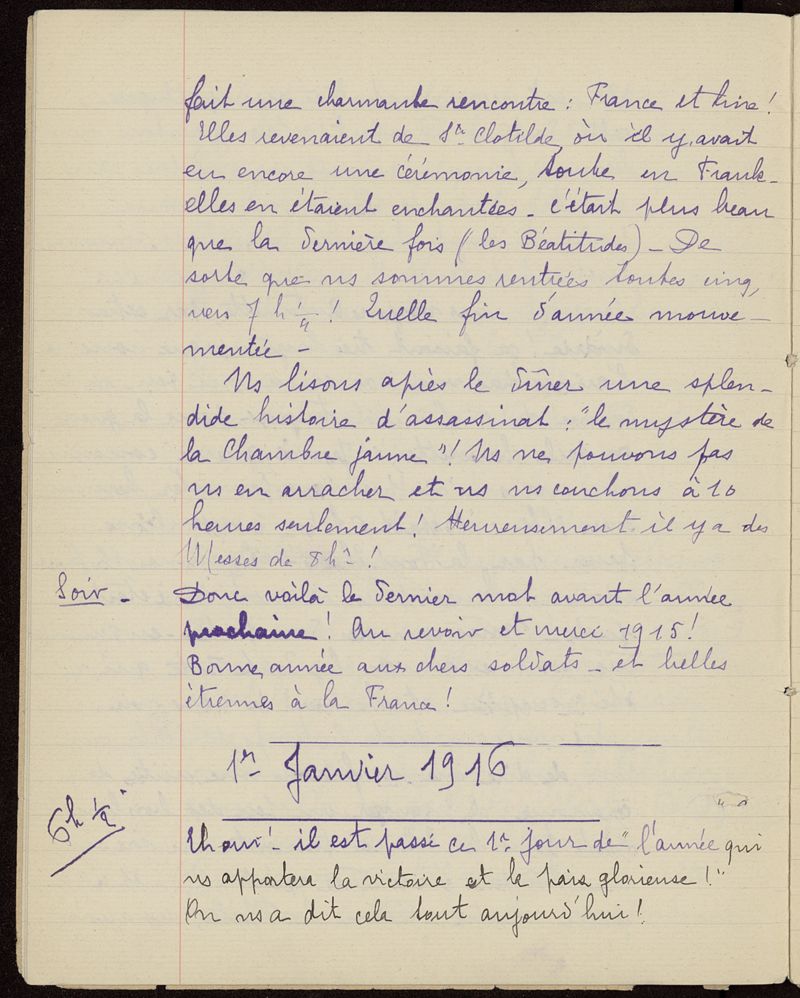 fait une charmante rencontre : France et Line !
Elles revenaient de Ste Clotilde, où il y avait
eu encore une cérémonie, toute en Frank –
elles en étaient enchantées – c'était plus beau
que la dernière fois (les Béatitudes) – De
sorte que ns sommes rentrées toutes cinq,
vers 7 h 1/4 ! Quelle fin d'année mouve –
mentée –
Ns lisons après le dîner une splen –
dide histoire d'assassinat : "le mystère de
la chambre jaune" ! Ns ne pouvons pas
ns en arracher et ns ns couchons à 10
heures seulement ! Heureusement il y a des
Messes de 8 hs !
Soir – Donc voilà le dernier mot avant l'année
prochaine ! Au revoir et merci 1915 !
Bonne année aux chers soldats – et belles
étrennes à la France !
1er Janvier 1916
6h 1/2
Eh oui ! – il est passé ce 1er jour de "l'année qui
ns apportera la victoire et la paix glorieuse !"
On ns a dit cela tout aujourd'hui !